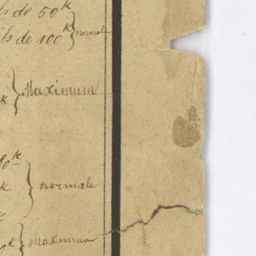 ls de 50k
ls de 100k } normale
k } Maximum
0k
k } normale
k } Maximum